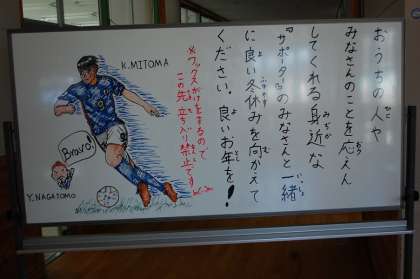 おうちの人や
みなさんのことを応えん
してくれる身近な
みぢか
『サポーター』のみなさんと一緒
いっしょ
に良い冬休みを向かえて
ください。良いお年を！
※ワックスがけをするので
この先、立ち入り禁止です
K.MITOMA
Bravo!
Y.NAGATOMO